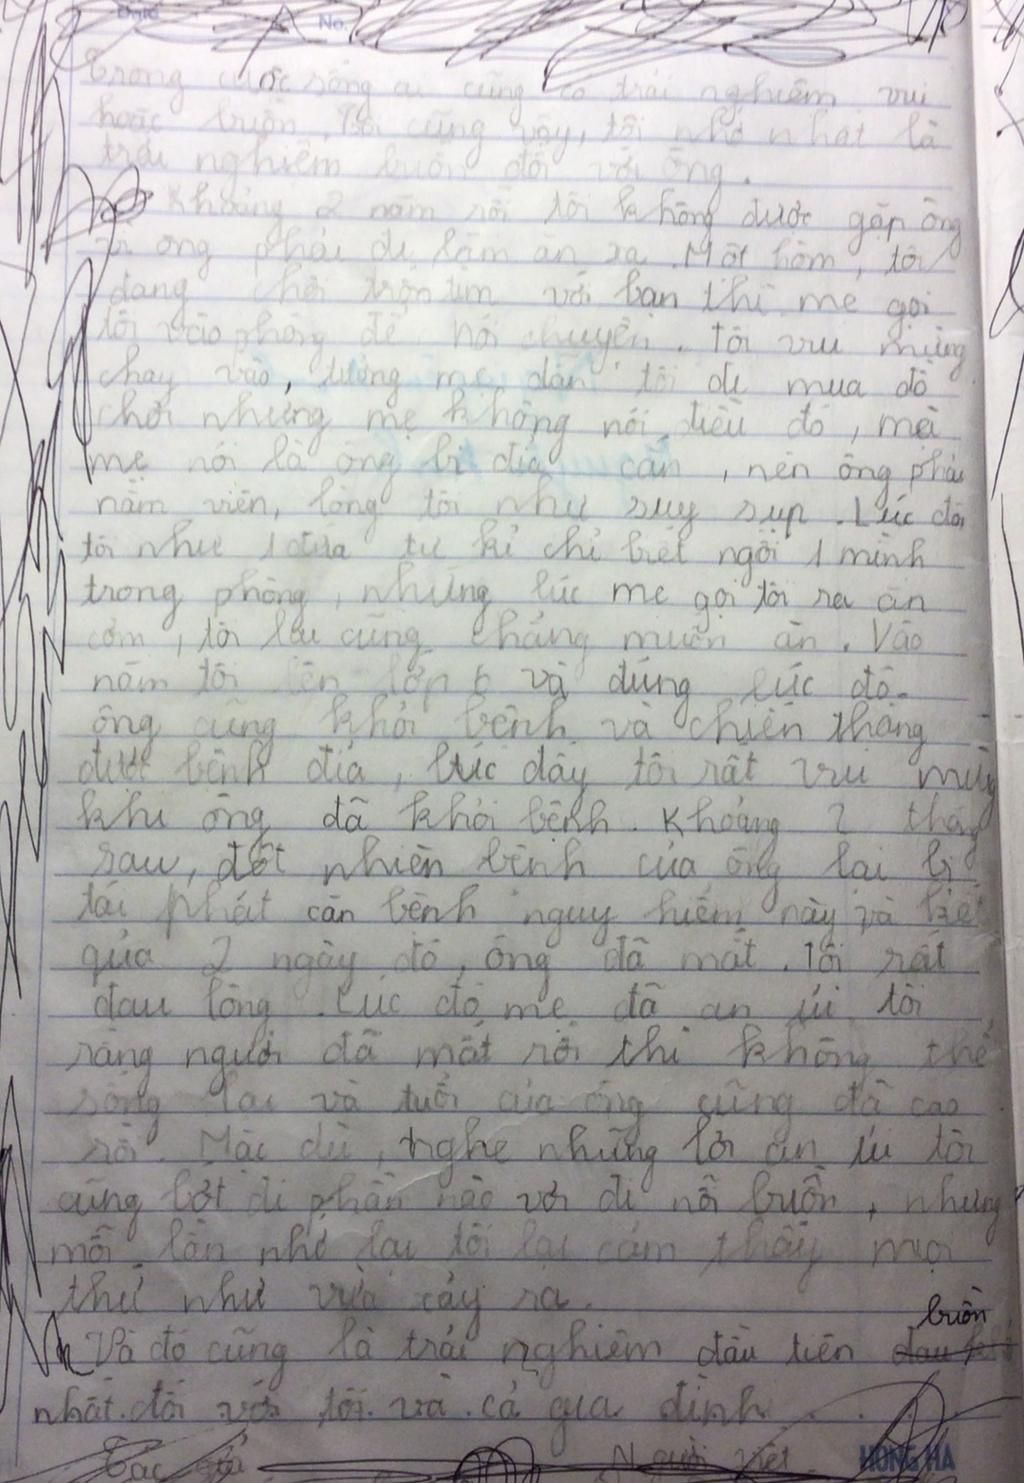 Date No.
Trong cuộc sống ai cũng có trải nghiệm vui
hoặc buồn. Tôi cũng vậy, tôi nhớ nhất là
trải nghiệm buồn đối với ông.
Khoảng 2 năm rồi tôi không được gặp ông
vì ông phải đi làm ăn xa. Một hôm, tôi
đang chơi trốn tìm với bạn thì mẹ gọi
tôi vào phòng để nói chuyện. Tôi vui mừng
chạy vào, tưởng mẹ dẫn tôi đi mua đồ
chơi nhưng mẹ không nói điều đó, mà
mẹ nói là ông bị địa căn, nên ông phải
nằm viện, lòng tôi như suy sụp. Lúc đó
tôi như 1 đứa tự kỉ chỉ biết ngồi 1 mình
trong phòng, những lúc mẹ gọi tôi ra ăn
cơm, tôi cũng chẳng muốn ăn. Vào
năm tôi lên lớp 6 và đúng lúc đó
ông cũng khỏi bệnh và chiến thắng
được bệnh địa, lúc đấy tôi rất vui mừng
khi ông đã khỏi bệnh. Khoảng 2 tháng
sau, đột nhiên bệnh của ông lại bị
tái phát căn bệnh nguy hiểm này và kết
quả 2 ngày đó, ông đã mất. Tôi rất
đau lòng. Lúc đó mẹ đã an ủi tôi
rằng người đã mất rồi thì không thể
sống lại và tuổi của ông cũng đã cao
rồi. Mặc dù, nghe những lời an ủi tôi
cũng bớt đi phần nào vơi đi nỗi buồn, nhưng
mỗi lần nhớ lại tôi lại cảm thấy mọi
thứ như vừa xảy ra.
buồn
Và đó cũng là trải nghiệm đầu tiên
nhất đối với tôi và cả gia đình
Tác giả Người viết HONG HA